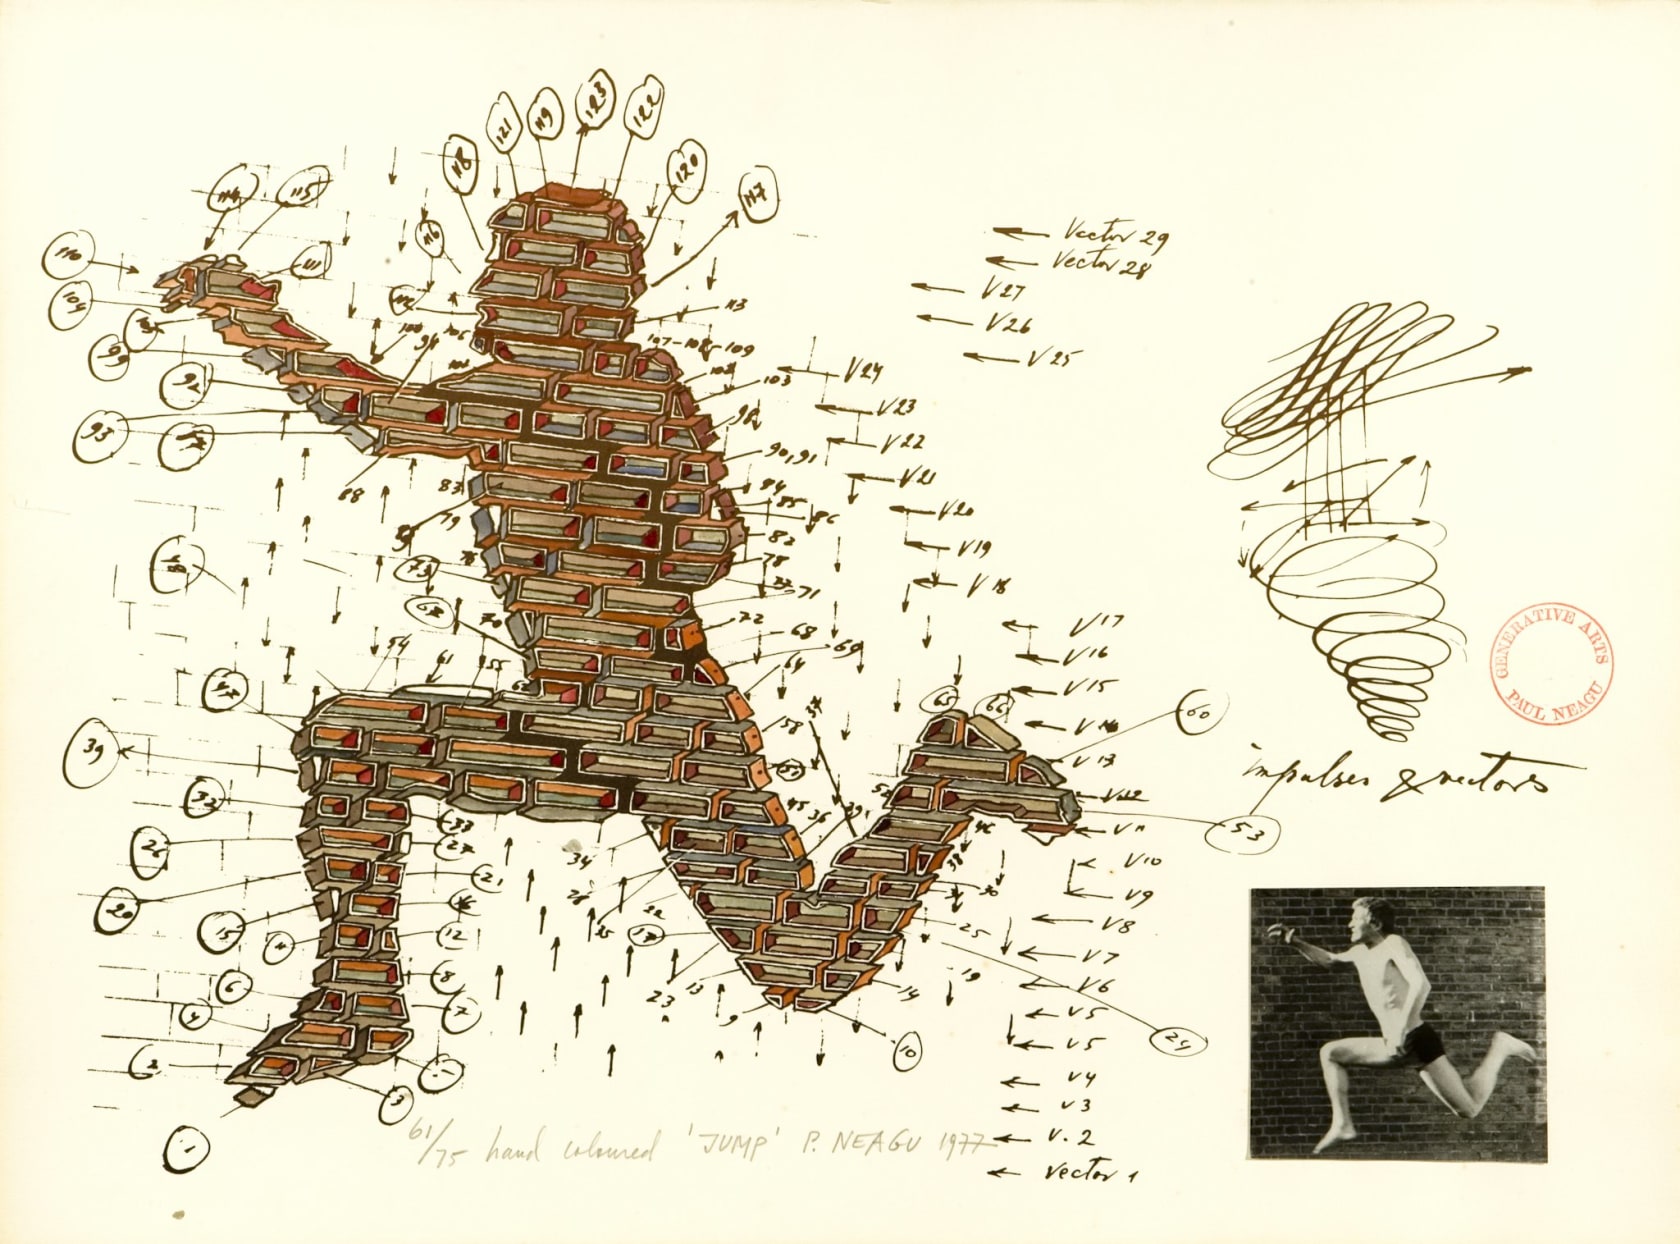 121
119
123
122
118
120
117
114
115
116
110
111
109
112
113
107-108-109
99
92
103
98
93
90,91
88
83
84
85
86
79
82
78
73
71
72
70
68
69
64
54
61
55
65
66
60
39
58
45
36
53
33
27
26
34
21
20
30
22
25
15
11
12
8
6
23
13
9
14
19
10
24
7
4
2
3
1
Vector 29
Vector 28
V27
V26
V25
V24
V23
V22
V21
V20
V19
V18
V17
V16
V15
V14
V13
V12
V11
V10
V9
V8
V7
V6
V5
V5
V4
V3
V.2
Vector 1
impulses & vectors
GENERATIVE ARTS
PAUL NEAGU
61/75 hand coloured 'JUMP' P. NEAGU 1977